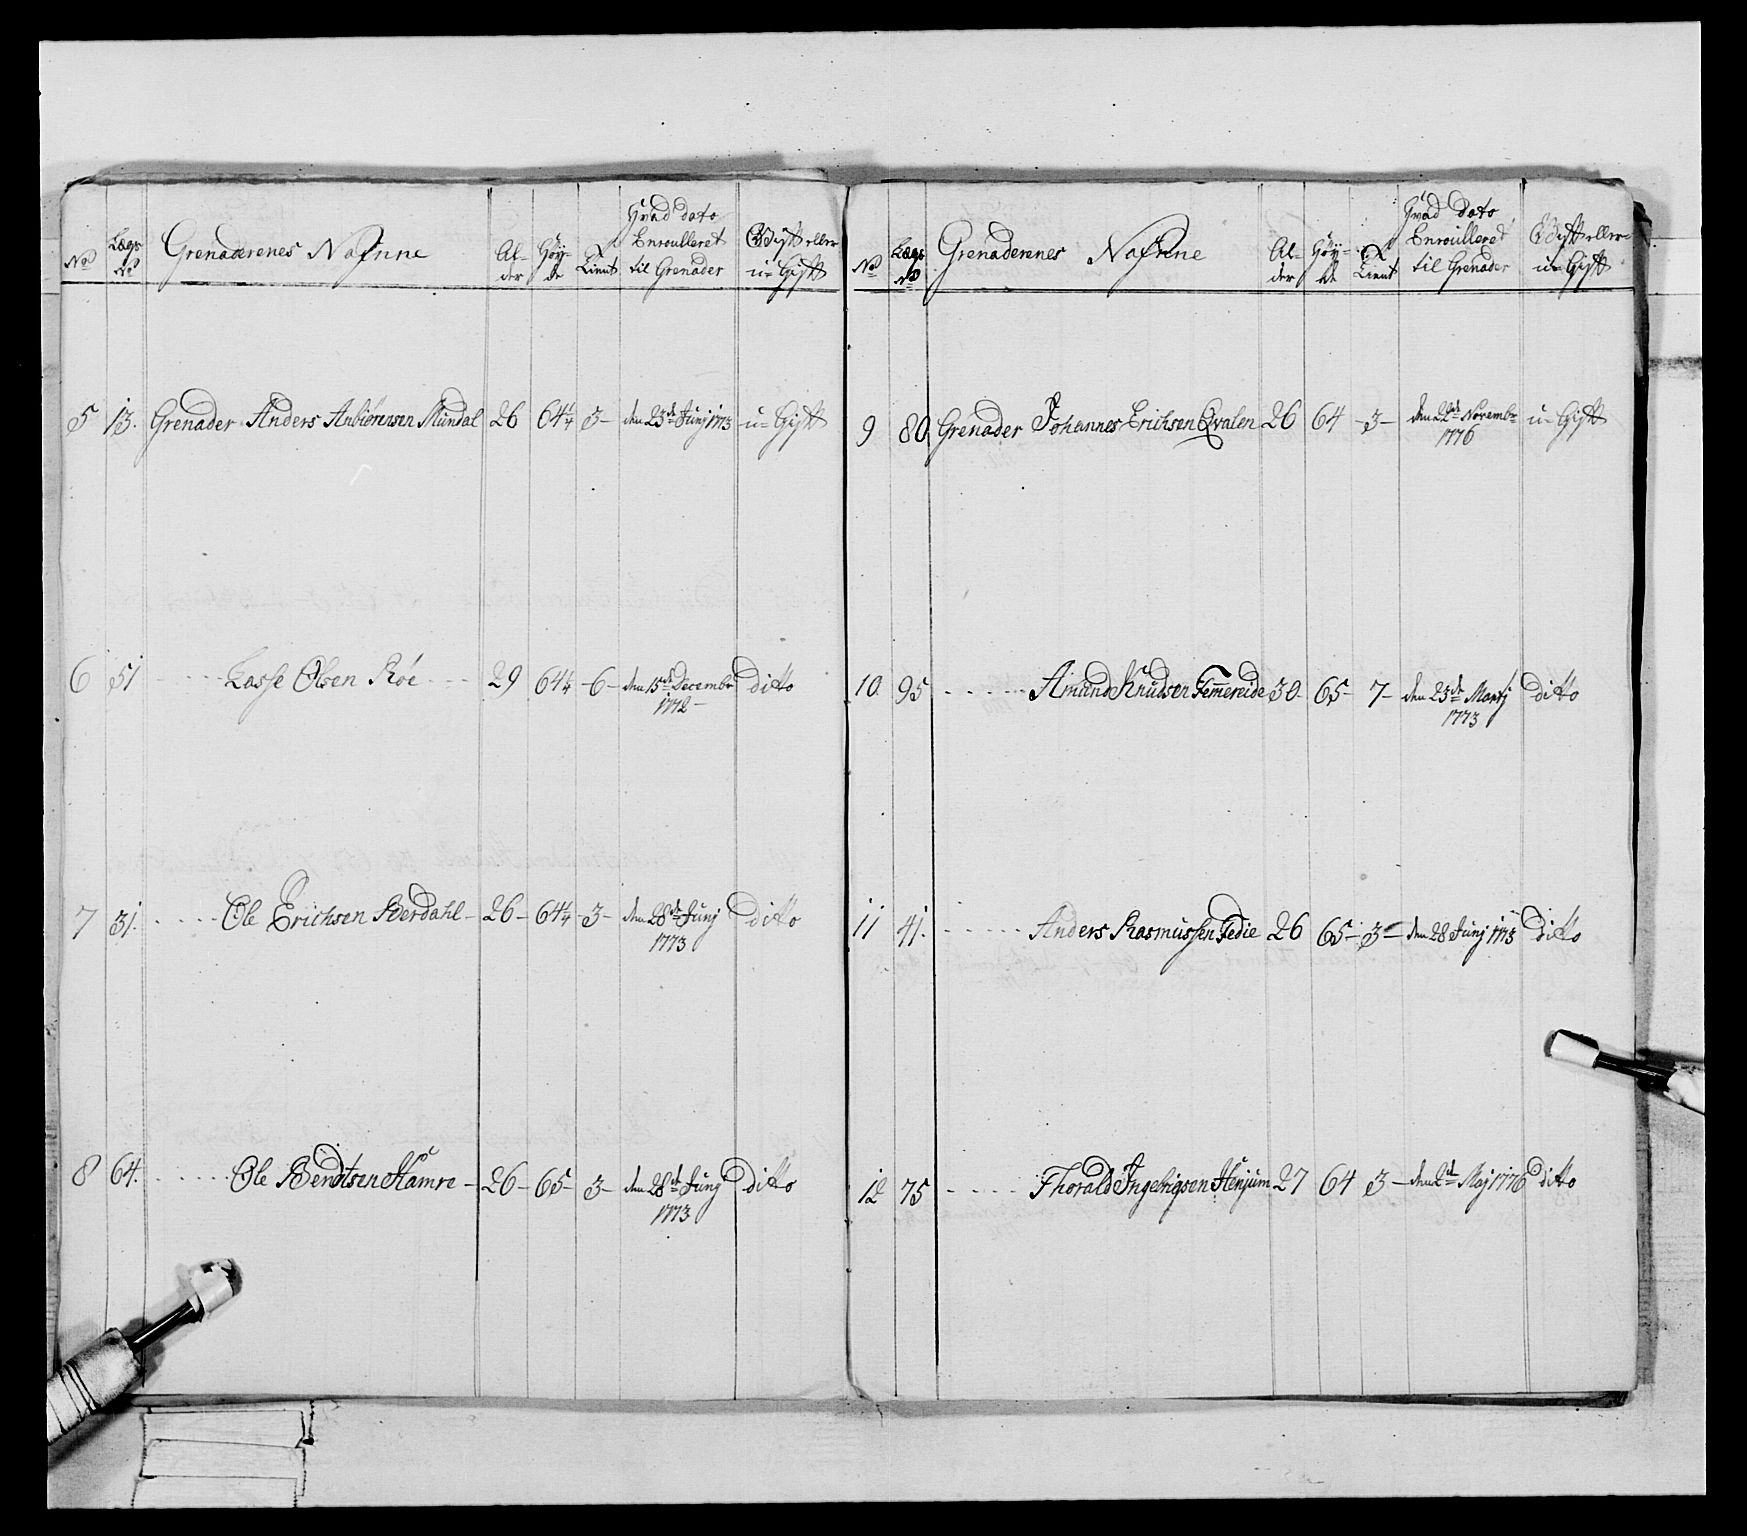 No
Lægs No
Grenaderenes Nafnne
Al-der
Höy-de
Tient
Hvad dato Enroulleret til Grenader
Gift eller u-Gift
5 13. Grenader Anders Anbiörensen Mundal 26 64 1/4 3 den 23de Junj 1773 u-Gift
6 51 Lasse Olsen Röe 29 64 1/4 6 den 15de Decembr 1772 ditto
7 31. Ole Erichsen Berdahl 26 64 1/4 3 den 28de Junj 1773 ditto
8 64. Ole Bendtsen Hamre 26 65 3 den 28de Junj 1773 ditto
No
Lægs No
Grenaderenes Nafnne
Al-der
Höy-de
Tient
Hvad dato Enroulleret til Grenader
Gift eller u-Gift
9 80 Grenader Johannes Erichsen Qvalen 26 64 3 den 22de Novembr 1776 u-Gift
10. 95 Amund Knudsen Femmereide 30 65 7 den 23de Martj 1773 ditto
11 41. Anders Rasmussen Fedie 26 65 3 den 28 Junj 1773 ditto
12 75 Thorald Ingebrigsen Henjum 27 64 3 den 2de Maj 1776 ditto